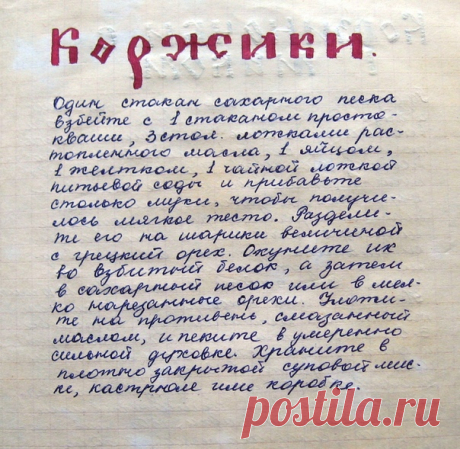 Коржики.
Один стакан сахарного песка
взбейте с 1 стаканом просток-
кваши, 3 стол. ложками рас-
топленного масла, 1 яйцом,
1 желтком, 1 чайной ложкой
питьевой соды и прибавьте
столько муки, чтобы получи-
лось мягкое тесто. Раздели-
те его на шарики величиной
с грецкий орех. Окуните их
во взбитый белок, а затем
в сахарный песок или в мел-
ко нарезанные орехи. Уложи-
те на противень, смазанный
маслом, и пеките в умеренно
сильной духовке. Храните в
плотно закрытой суповой мис-
ке, кастрюле или коробке.
postila.ru